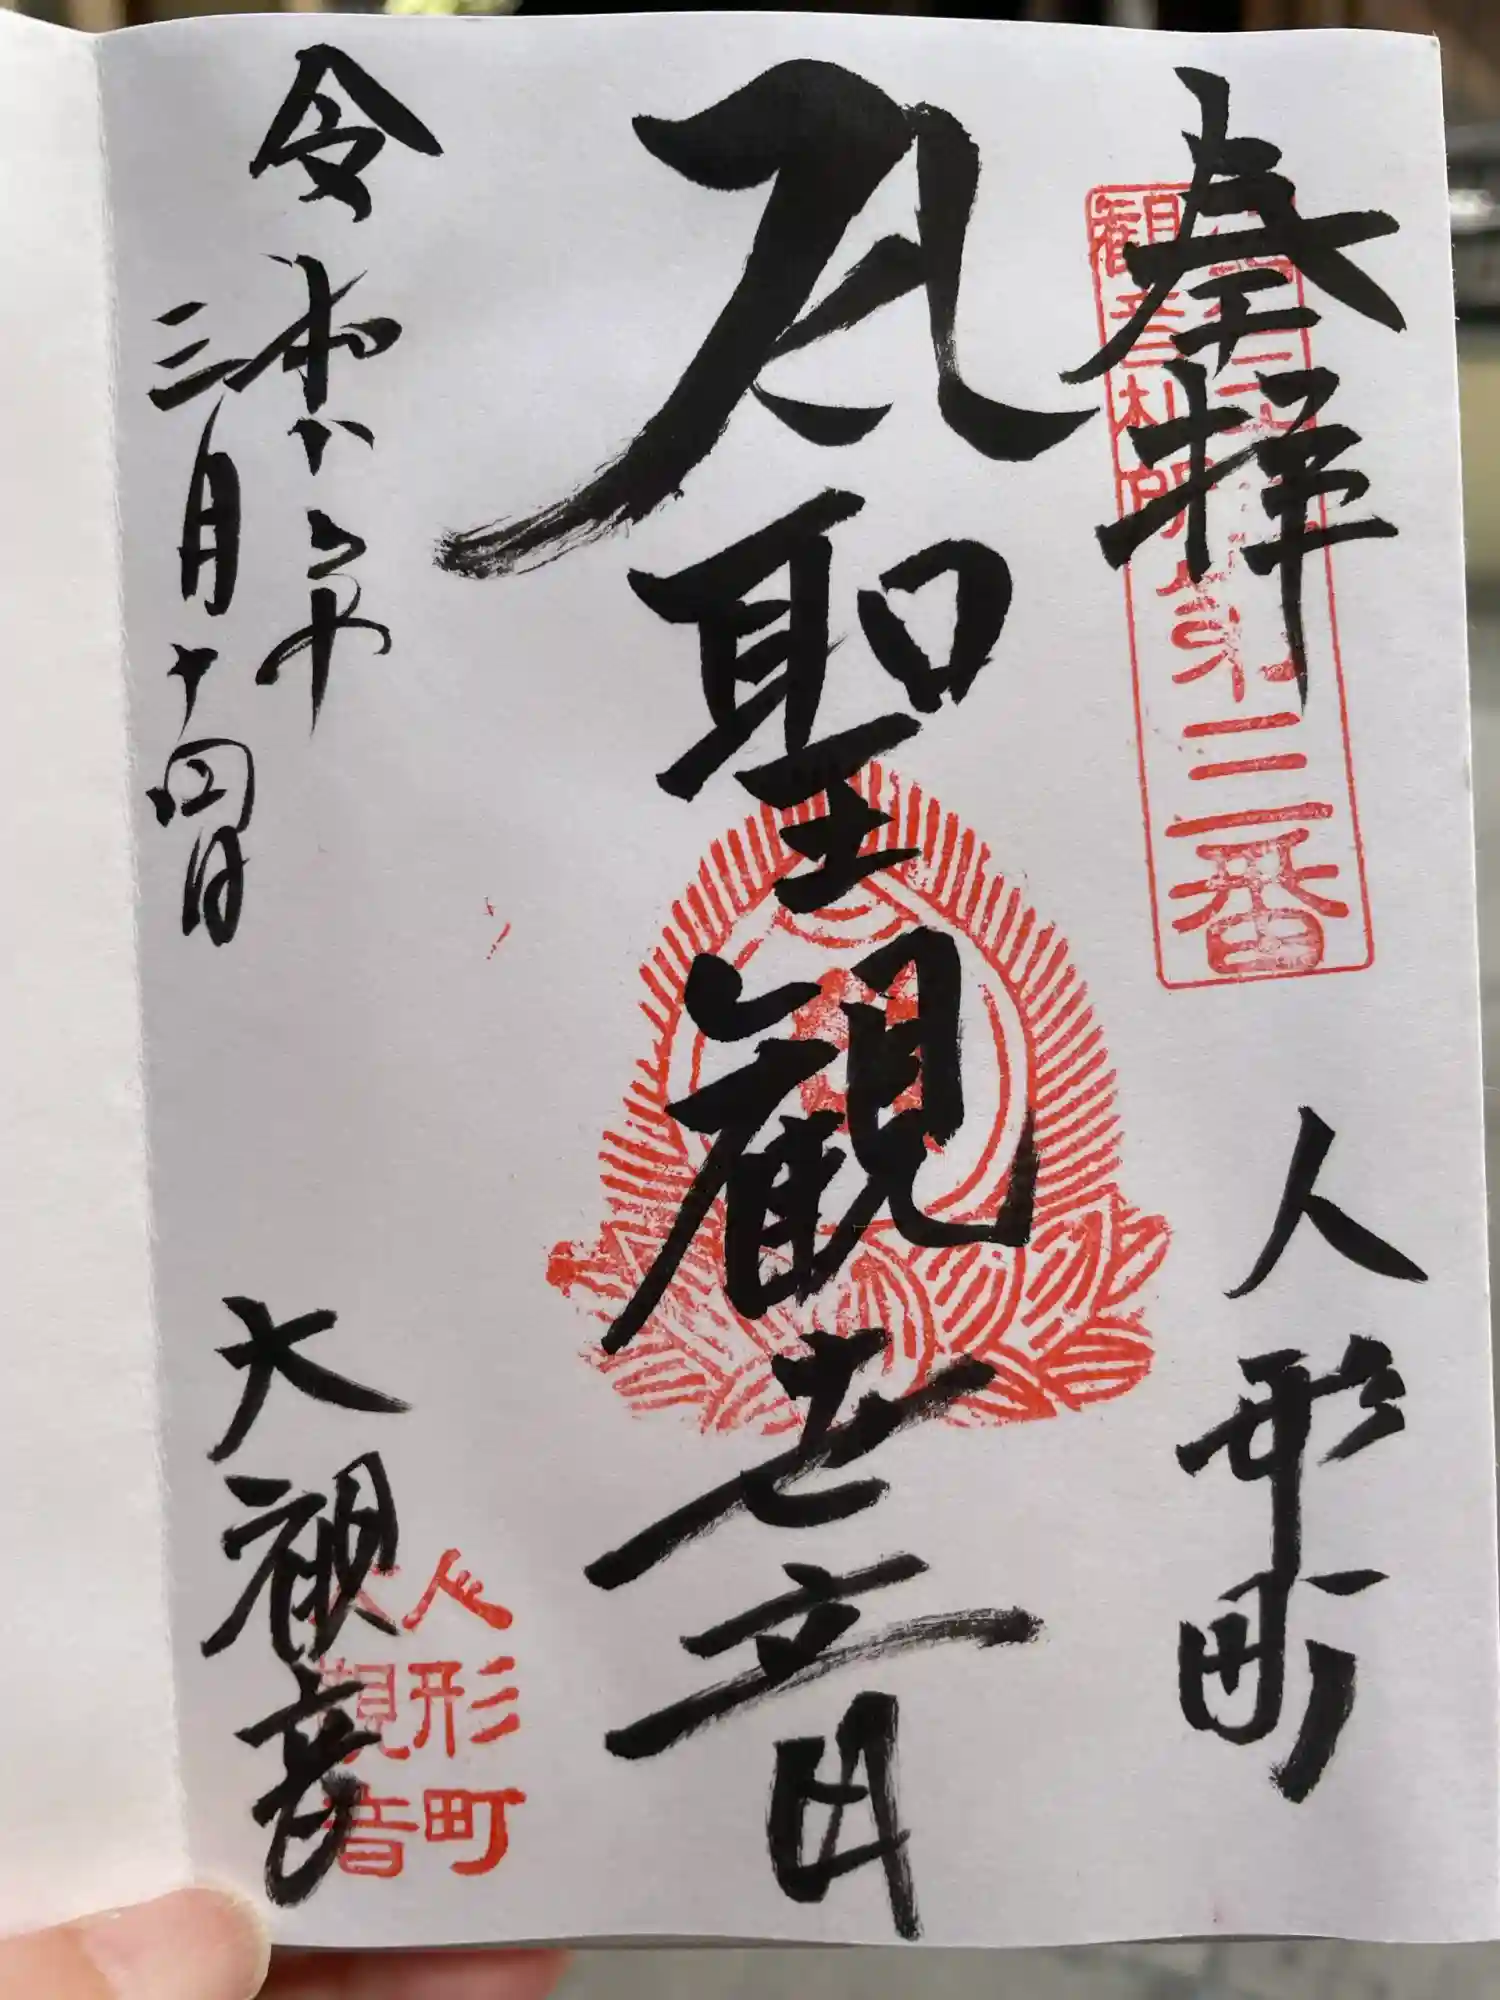 奉拝
江戸三十三
観音札所
第三番
人形町
聖観世音
令和 年
三月十四日
大観音
人形町
大観音